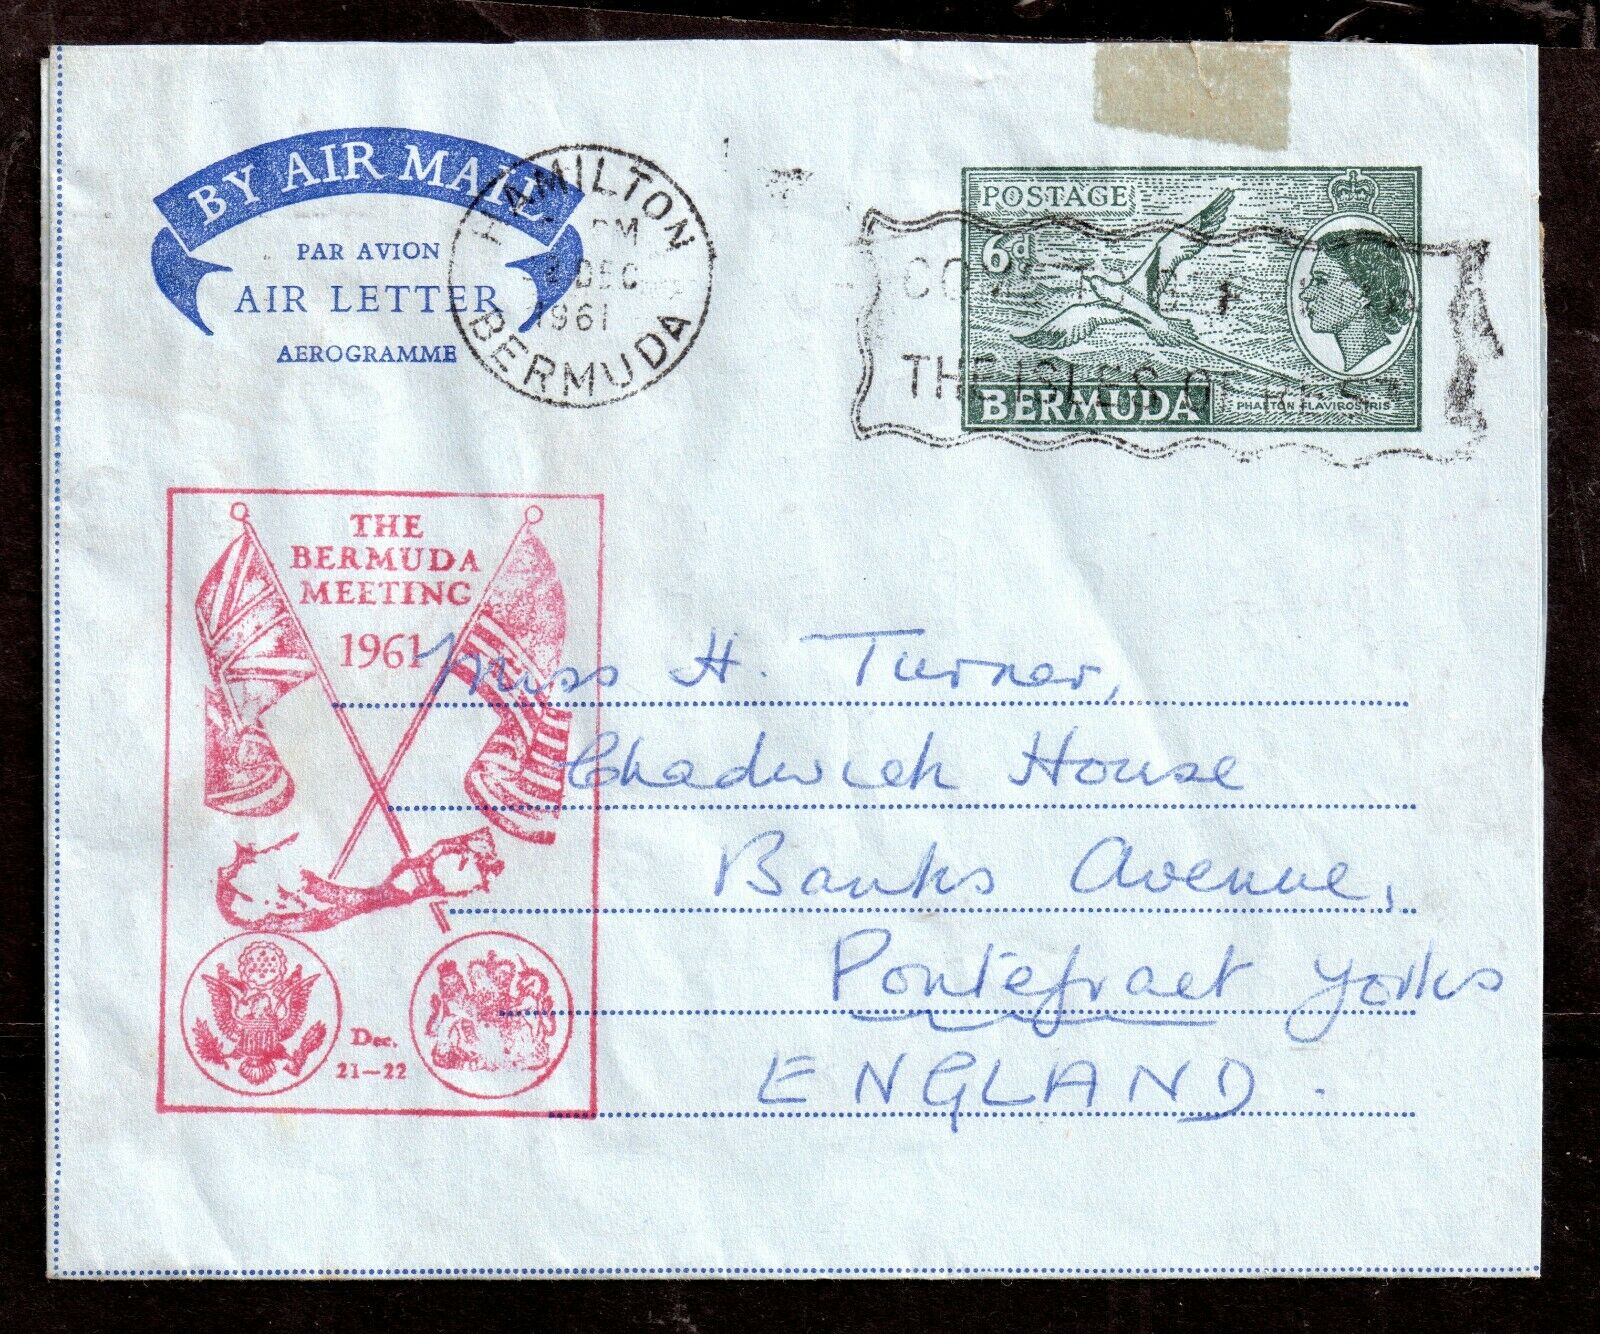 BY AIR MAIL
PAR AVION
AIR LETTER
AEROGRAMME
HAMILTON
PM
DEC
1961
BERMUDA
POSTAGE
6d
BERMUDA
PHAETON FLAVIROSTRIS
COME TO
THE ISLES OF REST
THE
BERMUDA
MEETING
1961
Dec.
21–22
Miss H. Turner,
Chadwick House
Banks Avenue,
Pontefract Yorks
ENGLAND.